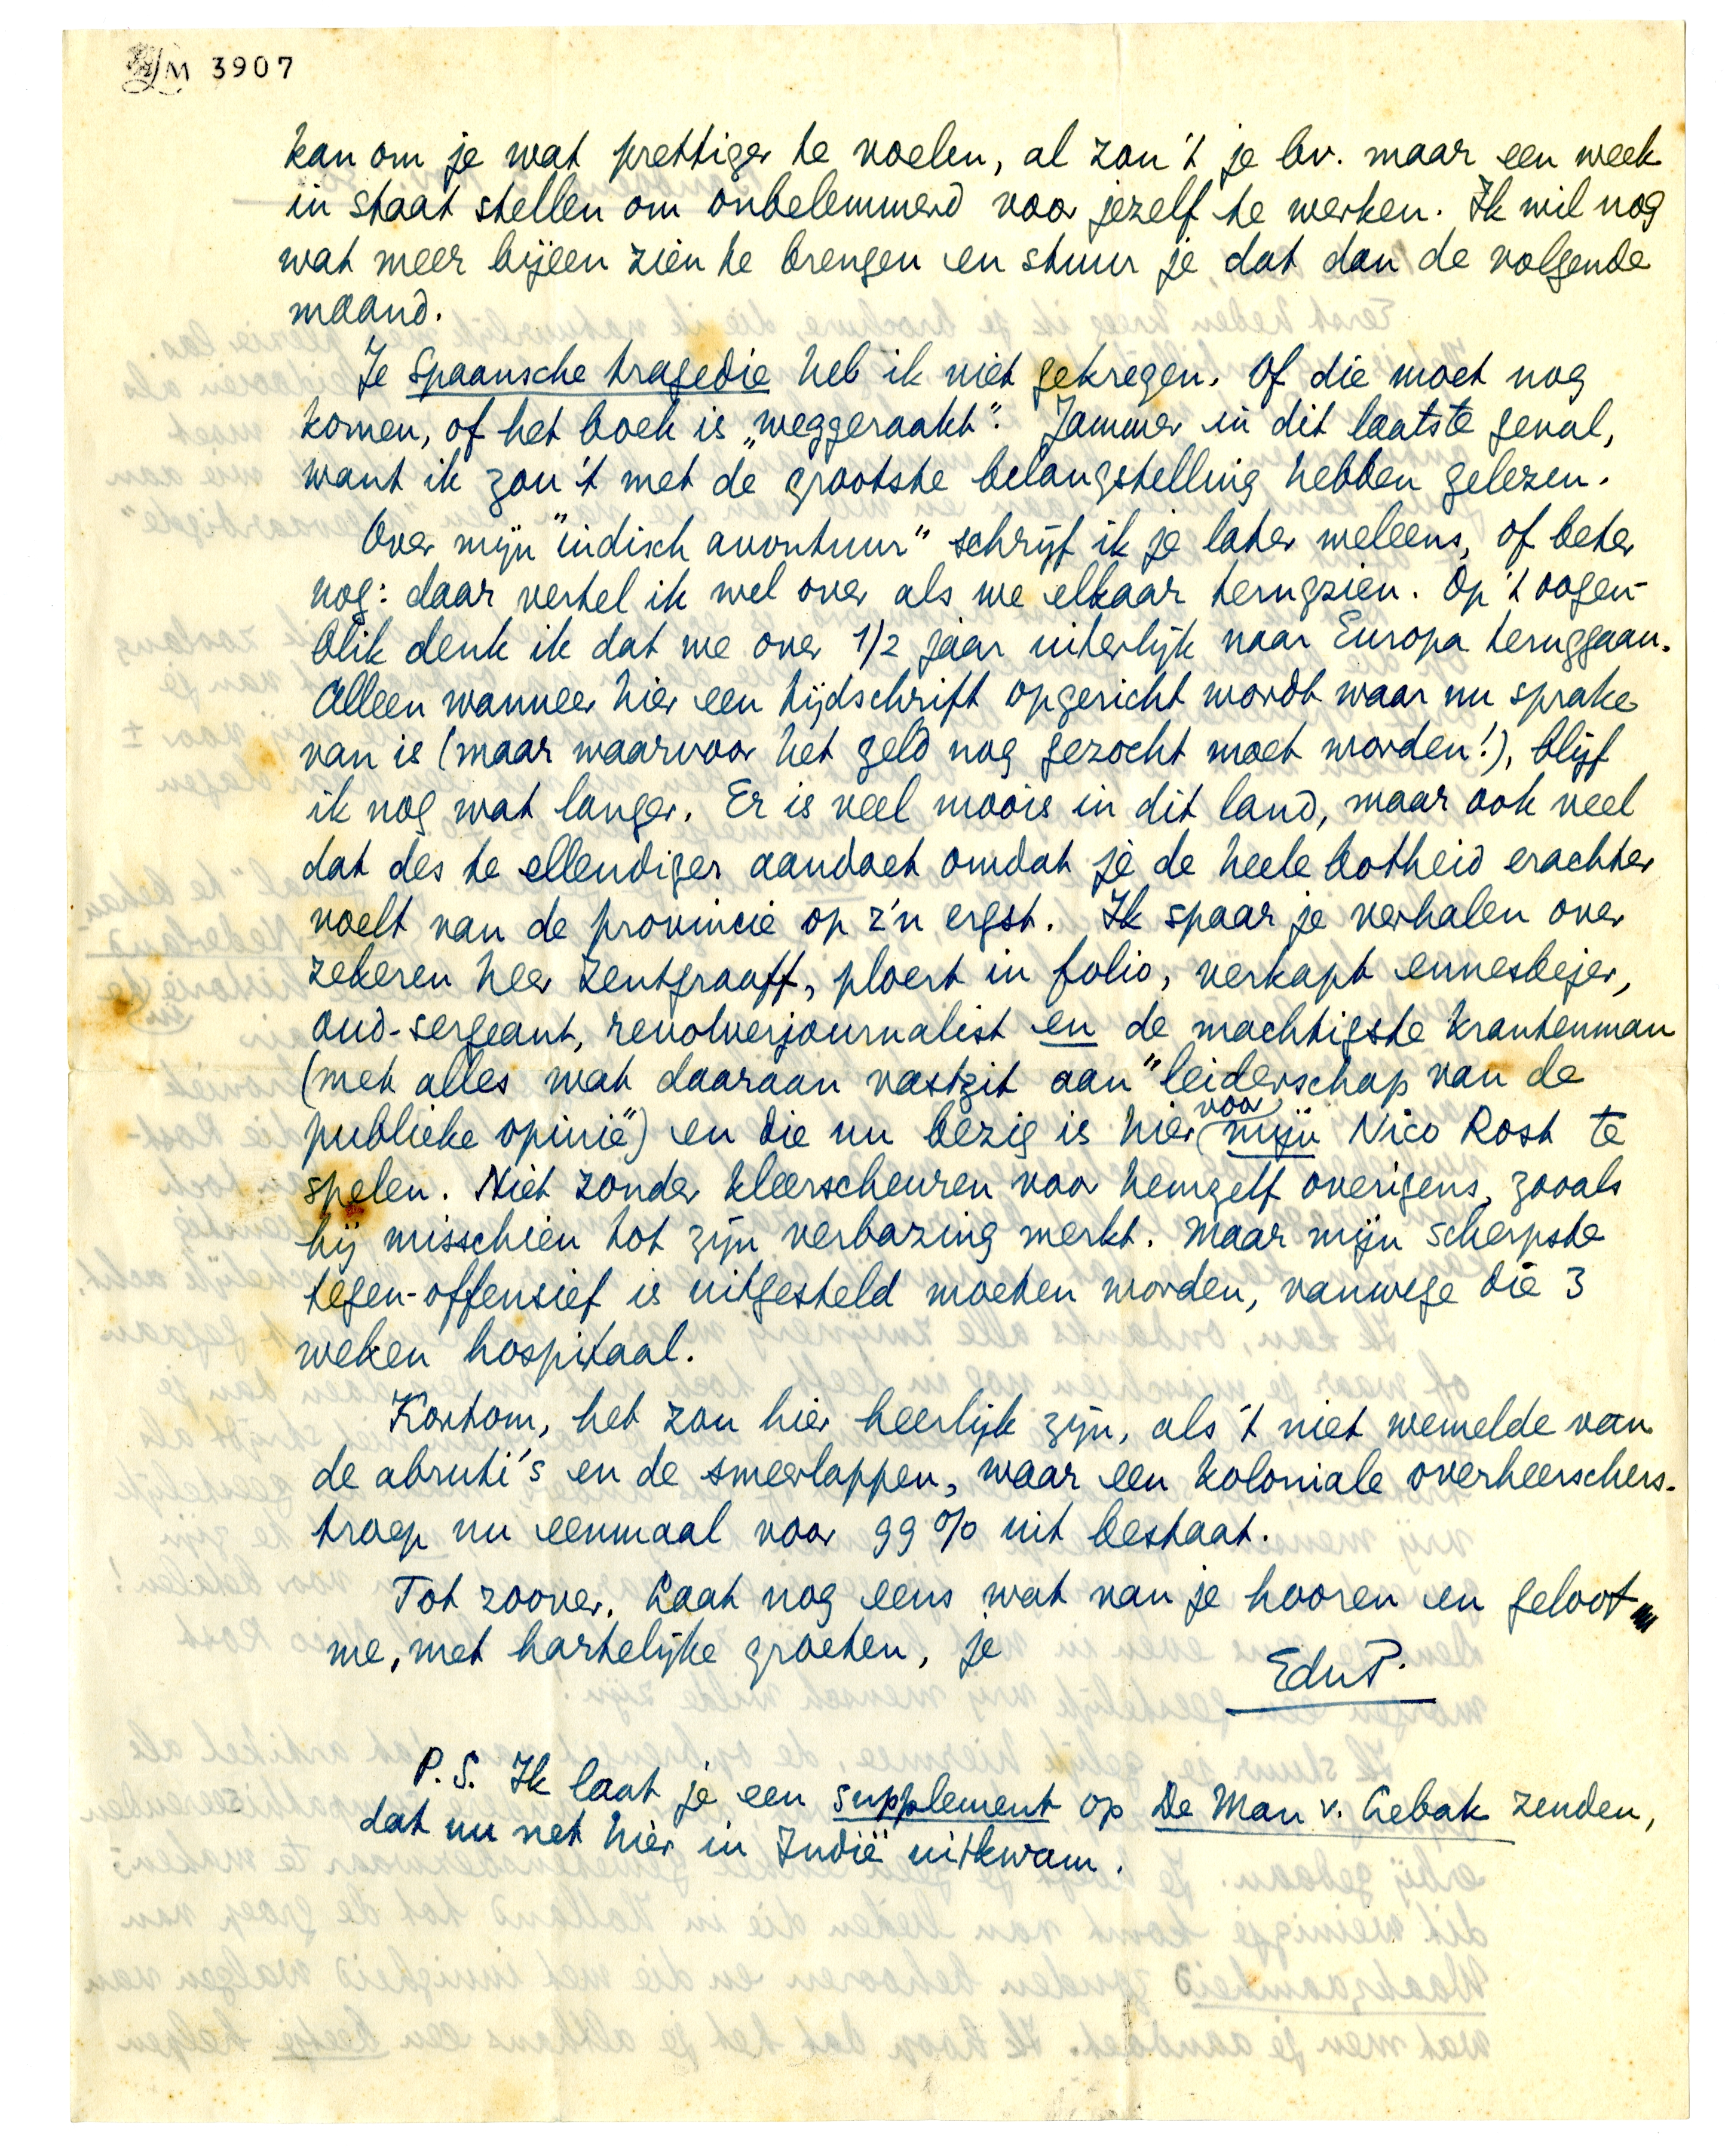 M 3907
kan om je wat prettiger te voelen, al zou 't je bv. maar een week
in staat stellen om onbelemmerd voor jezelf te werken. Ik wil nog
wat meer bijeen zien te brengen en stuur je dat dan de volgende
maand.
Je Spaansche tragedie heb ik niet gekregen. Of die moet nog
komen, of het boek is „weggeraakt". Jammer in dit laatste geval,
want ik zou 't met de grootste belangstelling hebben gelezen.
Over mijn "indisch avontuur" schrijf ik je later weleens, of beter
nog: daar vertel ik wel over als we elkaar terugzien. Op 't oogen-
blik denk ik dat we over 1/2 jaar uiterlijk naar Europa teruggaan.
Alleen wanneer hier een tijdschrift opgericht wordt waar nu sprake
van is (maar waarvoor het geld nog gezocht moet worden!), blijf
ik nog wat langer. Er is veel moois in dit land, maar ook veel
dat des te ellendiger aandoet omdat je de heele botheid erachter
voelt van de provincie op z'n ergst. Ik spaar je verhalen over
zekeren heer Zentgraaff, ploert in folio, verkapt ennesbejer,
oud-sergeant, revolverjournalist en de machtigste krantenman
(met alles wat daaraan vastzit aan "leiderschap van de
publieke opinie") en die nu bezig is hier voor mijn Nico Rost te
spelen. Niet zonder kleerscheuren voor hemzelf overigens, zooals
hij misschien tot zijn verbazing merkt. Maar mijn scherpste
tegen-offensief is uitgesteld moeten worden, vanwege die 3
weken hospitaal.
Kortom, het zou hier heerlijk zijn, als 't niet wemelde van
de abruti's en de smeerlappen, waar een koloniale overheerschers-
troep nu eenmaal voor 99% uit bestaat.
Tot zoover. Laat nog eens wat van je hooren en geloof
me, met hartelijke groeten, je
EduP.
P.S. Ik laat je een supplement op De Man v. Lebak zenden,
dat nu net hier in Indië uitkwam.